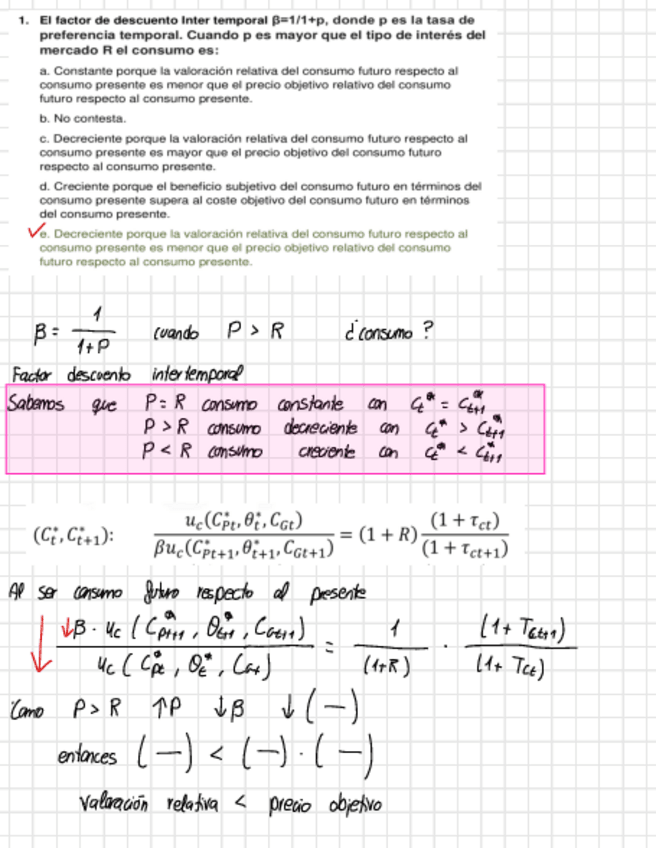 1. El factor de descuento Inter temporal β=1/1+p, donde p es la tasa de
preferencia temporal. Cuando p es mayor que el tipo de interés del
mercado R el consumo es:
a. Constante porque la valoración relativa del consumo futuro respecto al
consumo presente es menor que el precio objetivo relativo del consumo
futuro respecto al consumo presente.
b. No contesta.
c. Decreciente porque la valoración relativa del consumo futuro respecto al
consumo presente es mayor que el precio objetivo del consumo futuro
respecto al consumo presente.
d. Creciente porque el beneficio subjetivo del consumo futuro en términos del
consumo presente supera al coste objetivo del consumo futuro en términos
del consumo presente.
e. Decreciente porque la valoración relativa del consumo futuro respecto al
consumo presente es menor que el precio objetivo relativo del consumo
futuro respecto al consumo presente.
β = 1/(1+P) cuando P > R ¿consumo?
Factor descuento intertemporal
Sabemos que P = R consumo constante con C_t^* = C_{t+1}^*
P > R consumo decreciente con C_t^* > C_{t+1}^*
P < R consumo creciente con C_t^* < C_{t+1}^*
(C_t^*, C_{t+1}^*): u_c(C_{Pt}^*, θ_t^*, C_{Gt}) / βu_c(C_{Pt+1}^*, θ_{t+1}^*, C_{Gt+1}) = (1 + R) (1 + τ_{ct}) / (1 + τ_{ct+1})
Al ser consumo futuro respecto al presente
↓ ↓β · u_c (C_{Pt+1}^*, θ_{t+1}^*, C_{Gt+1}) / u_c (C_{Pt}^*, θ_t^*, C_{Gt}) = 1/(1+R) · (1+T_{Ct+1}) / (1+T_{Ct})
Como P > R ↑P ↓β ↓(—)
entonces (—) < (—) · (—)
Valoración relativa < precio objetivo